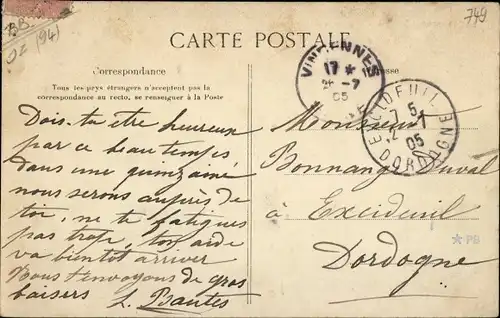 749
BB.
02 (94)
CARTE POSTALE
Correspondance
Tous les pays étrangers n'acceptent pas la
correspondance au recto, se renseigner à la Poste
VINCENNES
17 *
05
EXCIDEUIL
05
DORDOGNE
Dois-tu être heureux
par ce beau temps
dans une quinzaine
nous serons auprès de
toi, ne te fatigues
pas trop, ton aide
va bientôt arriver
Nous t'envoyons de gros
baisers L. Bantes
Monsieur
Bonnange Duval
à Excideuil
Dordogne
*PB